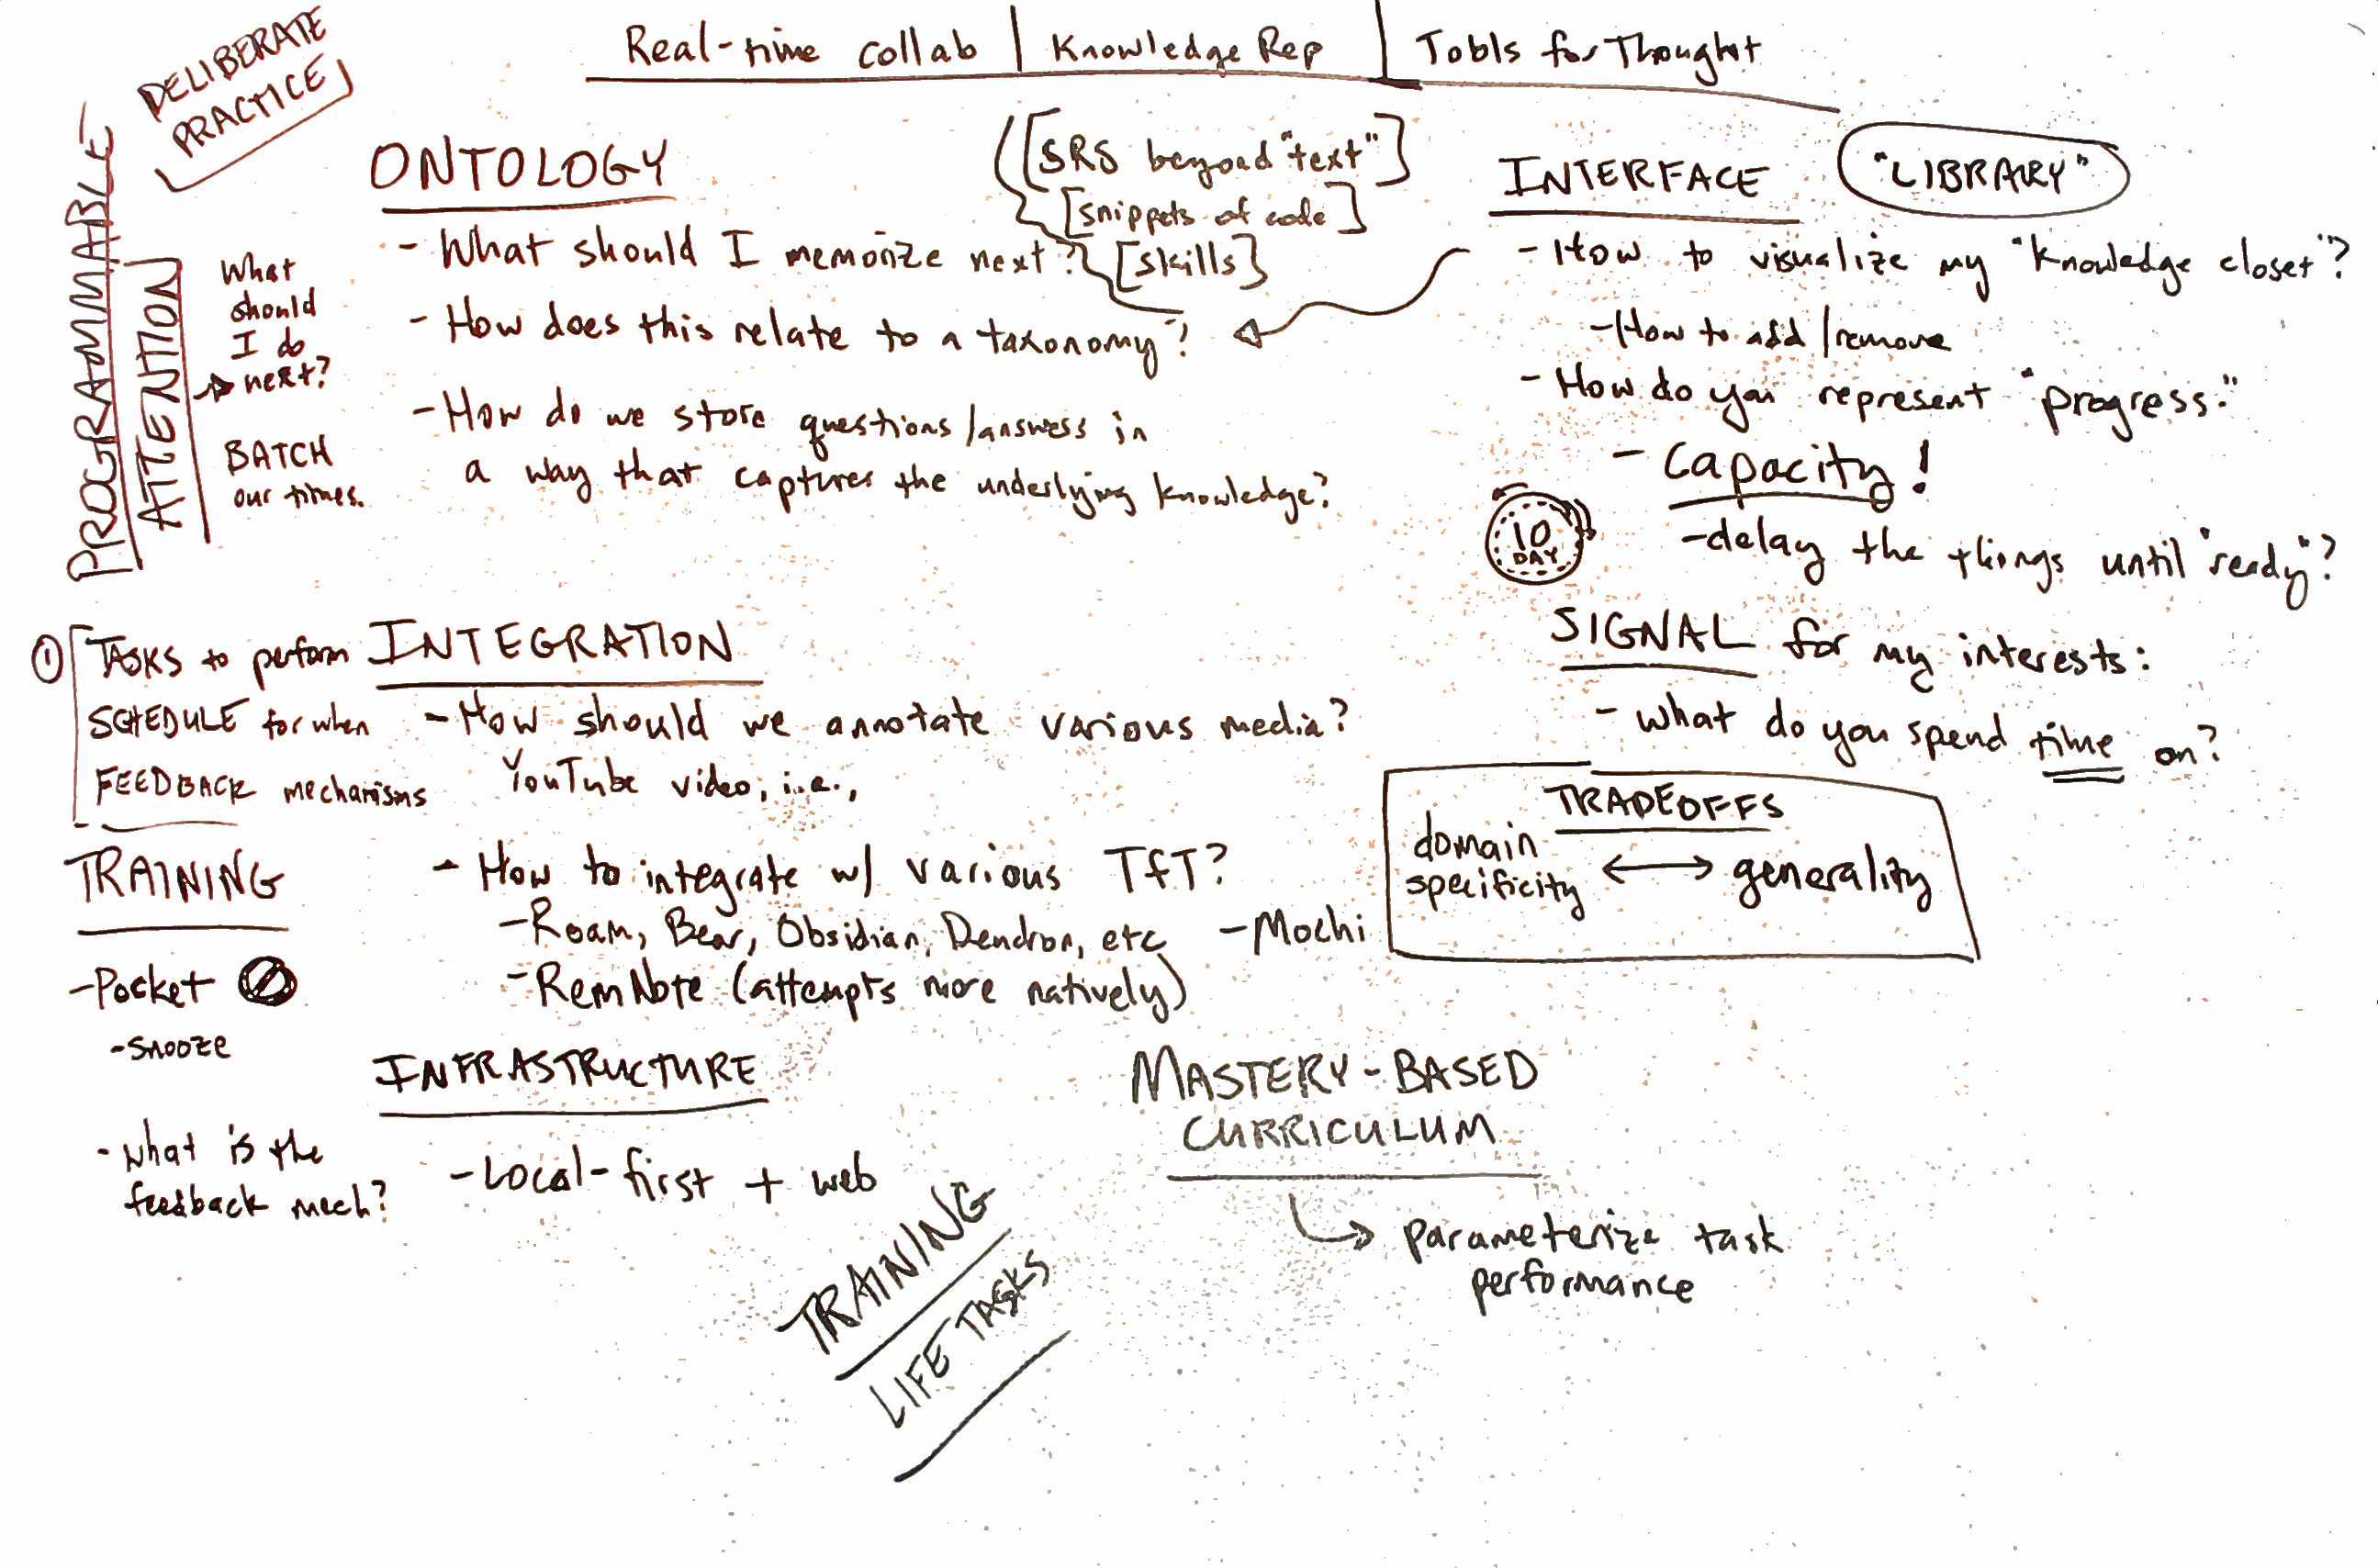 Real-time collab | Knowledge Rep | Tools for Thought
DELIBERATE
PRACTICE
PROGRAMMABLE
ATTENTION
What
should
I do
next?
BATCH
our times.
ONTOLOGY
- What should I memorize next?
- How does this relate to a taxonomy?
- How do we store questions/answers in
a way that captures the underlying knowledge?
[SRS beyond "text"]
[snippets of code]
[skills]
INTERFACE
"LIBRARY"
- How to visualize my "knowledge closet"?
- How to add/remove
- How do you represent "progress."
- capacity!
10
DAY
- delay the things until "ready"?
SIGNAL for my interests:
- what do you spend time on?
TRADEOFFS
domain
specificity
generality
① TASKS to perform
SCHEDULE for when
FEEDBACK mechanisms
INTEGRATION
- How should we annotate various media?
YouTube video, i.e.,
- How to integrate w/ various TfT?
- Roam, Bear, Obsidian, Dendron, etc
- Mochi
- RemNote (attempts more natively)
TRAINING
- Pocket
- snooze
- what is the
feedback mech?
INFRASTRUCTURE
- Local-first + web
MASTERY-BASED
CURRICULUM
parameterize task
performance
TRAINING
LIFE TASKS